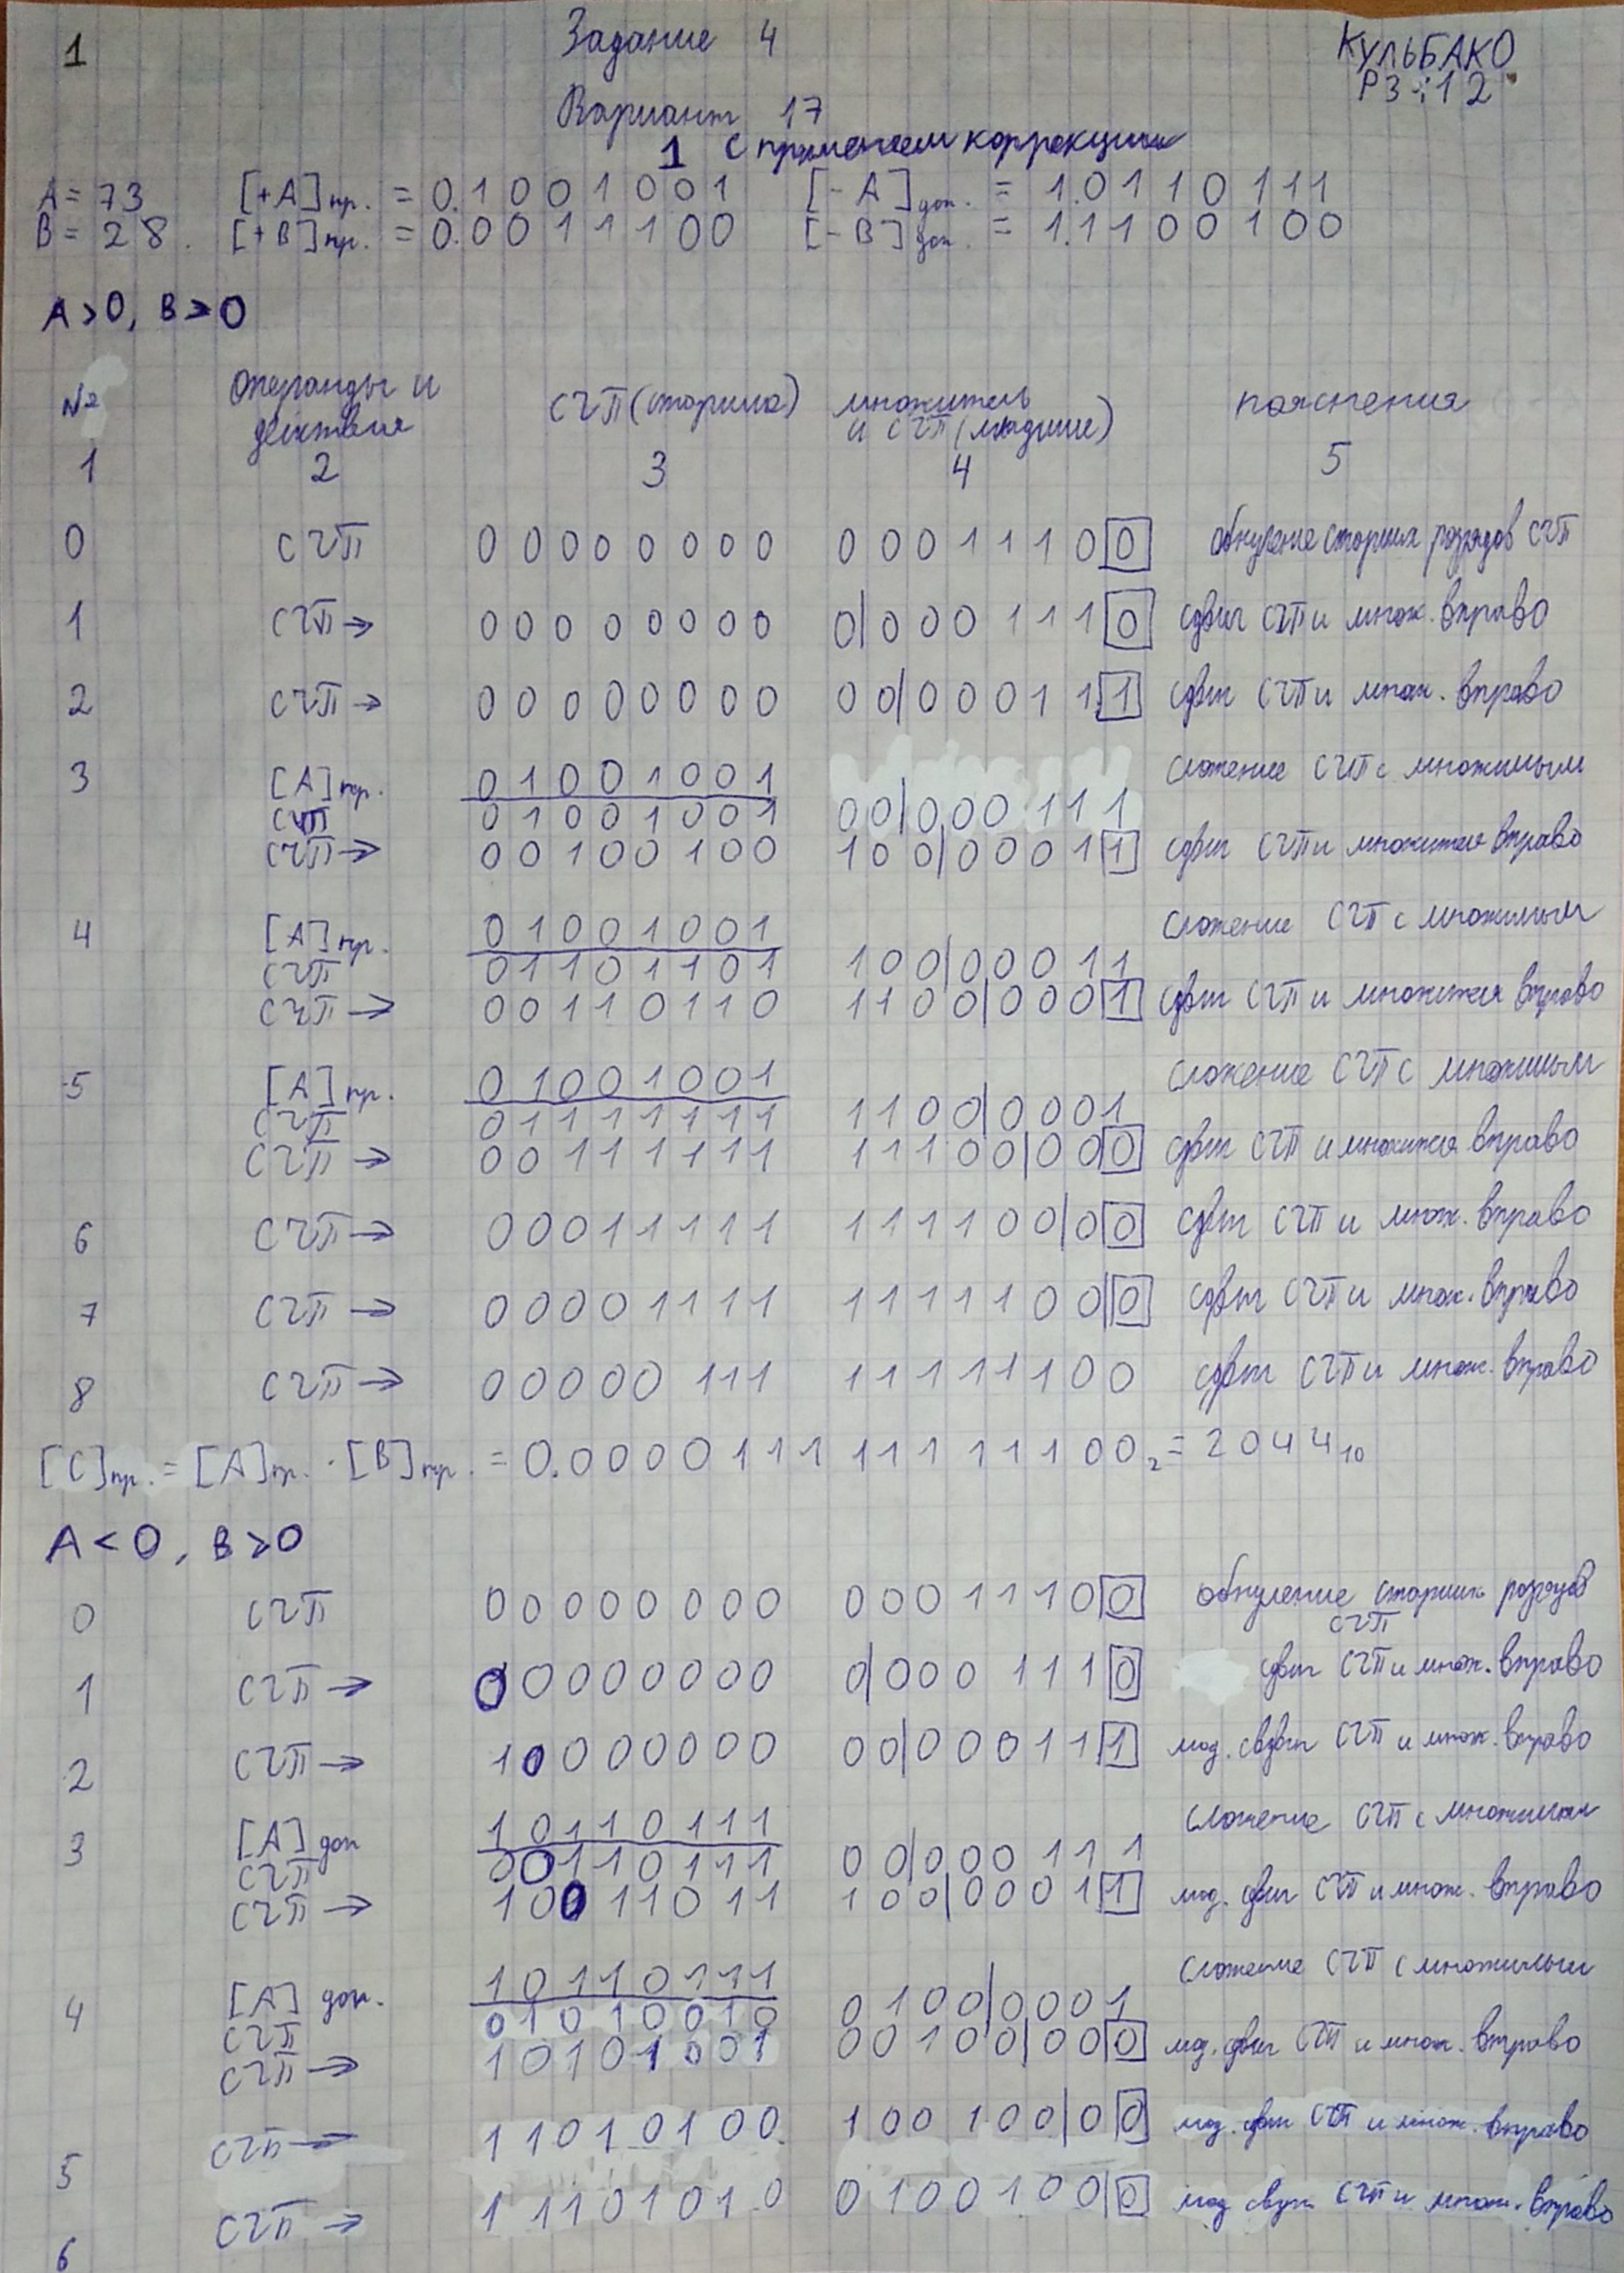 1 Задание 4 КУЛЬБАКО
Р3112
Вариант 17
1 С применением коррекции
A = 73 [+A]пр. = 0.1001001 [-A]доп. = 1.0110111
B = 28. [+B]пр. = 0.0011100 [-B]доп. = 1.1100100
A > 0, B > 0
№ Операнды и действия СЧП (старшие) множитель и СЧП (младшие) пояснения
1 2 3 4 5
0 СЧП 0 0 0 0 0 0 0 0 0 0 0 1 1 1 0 0 обнуление старших разрядов СЧП
1 СЧП → 0 0 0 0 0 0 0 0 0|0 0 0 1 1 1 0 сдвиг СЧП и множ. вправо
2 СЧП → 0 0 0 0 0 0 0 0 0 0|0 0 0 1 1 1 сдвиг СЧП и множ. вправо
3 [A]пр. 0 1 0 0 1 0 0 1 сложение СЧП с множимым
СЧП 0 1 0 0 1 0 0 1 0 0|0 0 0 1 1 1
СЧП → 0 0 1 0 0 1 0 0 1 0 0|0 0 0 1 1 сдвиг СЧП и множителя вправо
4 [A]пр. 0 1 0 0 1 0 0 1 сложение СЧП с множимым
СЧП 0 1 1 0 1 1 0 1 1 0 0|0 0 0 1 1
СЧП → 0 0 1 1 0 1 1 0 1 1 0 0|0 0 0 1 сдвиг СЧП и множителя вправо
5 [A]пр. 0 1 0 0 1 0 0 1 сложение СЧП с множимым
СЧП 0 1 1 1 1 1 1 1 1 1 0 0|0 0 0 1
СЧП → 0 0 1 1 1 1 1 1 1 1 1 0 0|0 0 0 сдвиг СЧП и множителя вправо
6 СЧП → 0 0 0 1 1 1 1 1 1 1 1 1 0 0|0 0 сдвиг СЧП и множ. вправо
7 СЧП → 0 0 0 0 1 1 1 1 1 1 1 1 1 0 0|0 сдвиг СЧП и множ. вправо
8 СЧП → 0 0 0 0 0 1 1 1 1 1 1 1 1 1 0 0 сдвиг СЧП и множ. вправо
[C]пр. = [A]пр. · [B]пр. = 0.0000111 11111100₂ = 2044₁₀
A < 0, B > 0
0 СЧП 0 0 0 0 0 0 0 0 0 0 0 1 1 1 0 0 обнуление старших разрядов СЧП
1 СЧП → 0 0 0 0 0 0 0 0 0|0 0 0 1 1 1 0 сдвиг СЧП и множ. вправо
2 СЧП → 1 0 0 0 0 0 0 0 0 0|0 0 0 1 1 1 мод. сдвиг СЧП и множ. вправо
3 [A]доп 1 0 1 1 0 1 1 1 сложение СЧП с множимым
СЧП 0 0 1 1 0 1 1 1 0 0|0 0 0 1 1 1
СЧП → 1 0 0 1 1 0 1 1 1 0 0|0 0 0 1 1 мод. сдвиг СЧП и множ. вправо
4 [A]доп. 1 0 1 1 0 1 1 1 сложение СЧП с множимым
СЧП 0 1 0 1 0 0 1 0 0 1 0 0|0 0 0 1
СЧП → 1 0 1 0 1 0 0 1 0 0 1 0 0|0 0 0 мод. сдвиг СЧП и множ. вправо
5 СЧП → 1 1 0 1 0 1 0 0 1 0 0 1 0 0|0 0 мод. сдвиг СЧП и множ. вправо
6 СЧП → 1 1 1 0 1 0 1 0 0 1 0 0 1 0 0|0 мод. сдвиг СЧП и множ. вправо